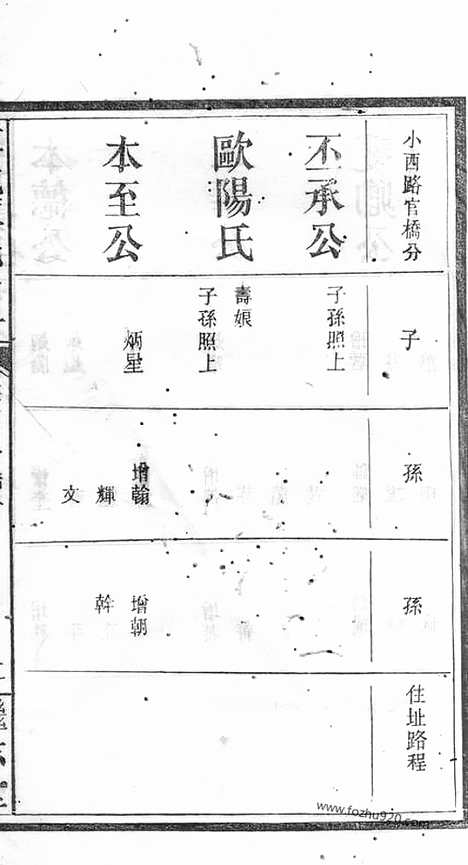 小西路官橋分
子
孫
孫
住址路程
丕承公
子孫照上
歐陽氏
壽娘
子孫照上
本至公
炳星
增翰
輝
文
增朝
幹
www.fozhu920.com